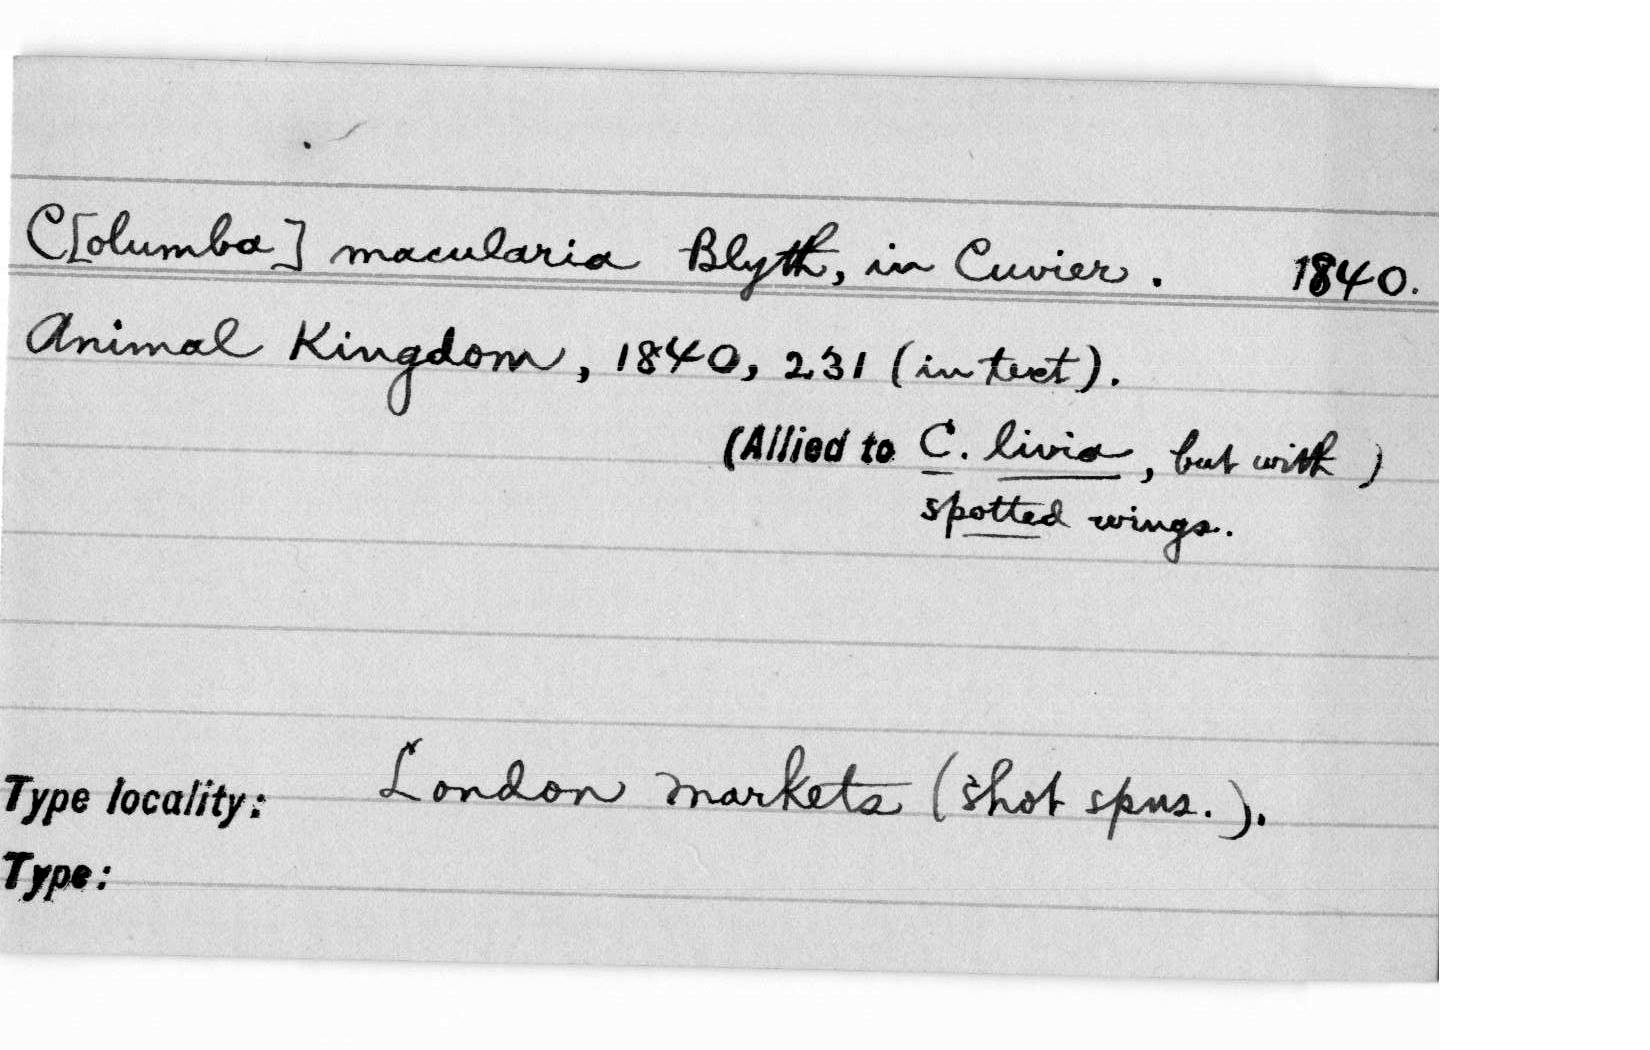 C[olumba] macularia Blyth, in Cuvier. 1840.
Animal Kingdom, 1840, 231 (in text).
(Allied to C. livia, but with )
spotted wings.
Type locality: London markets (shot spms.).
Type: